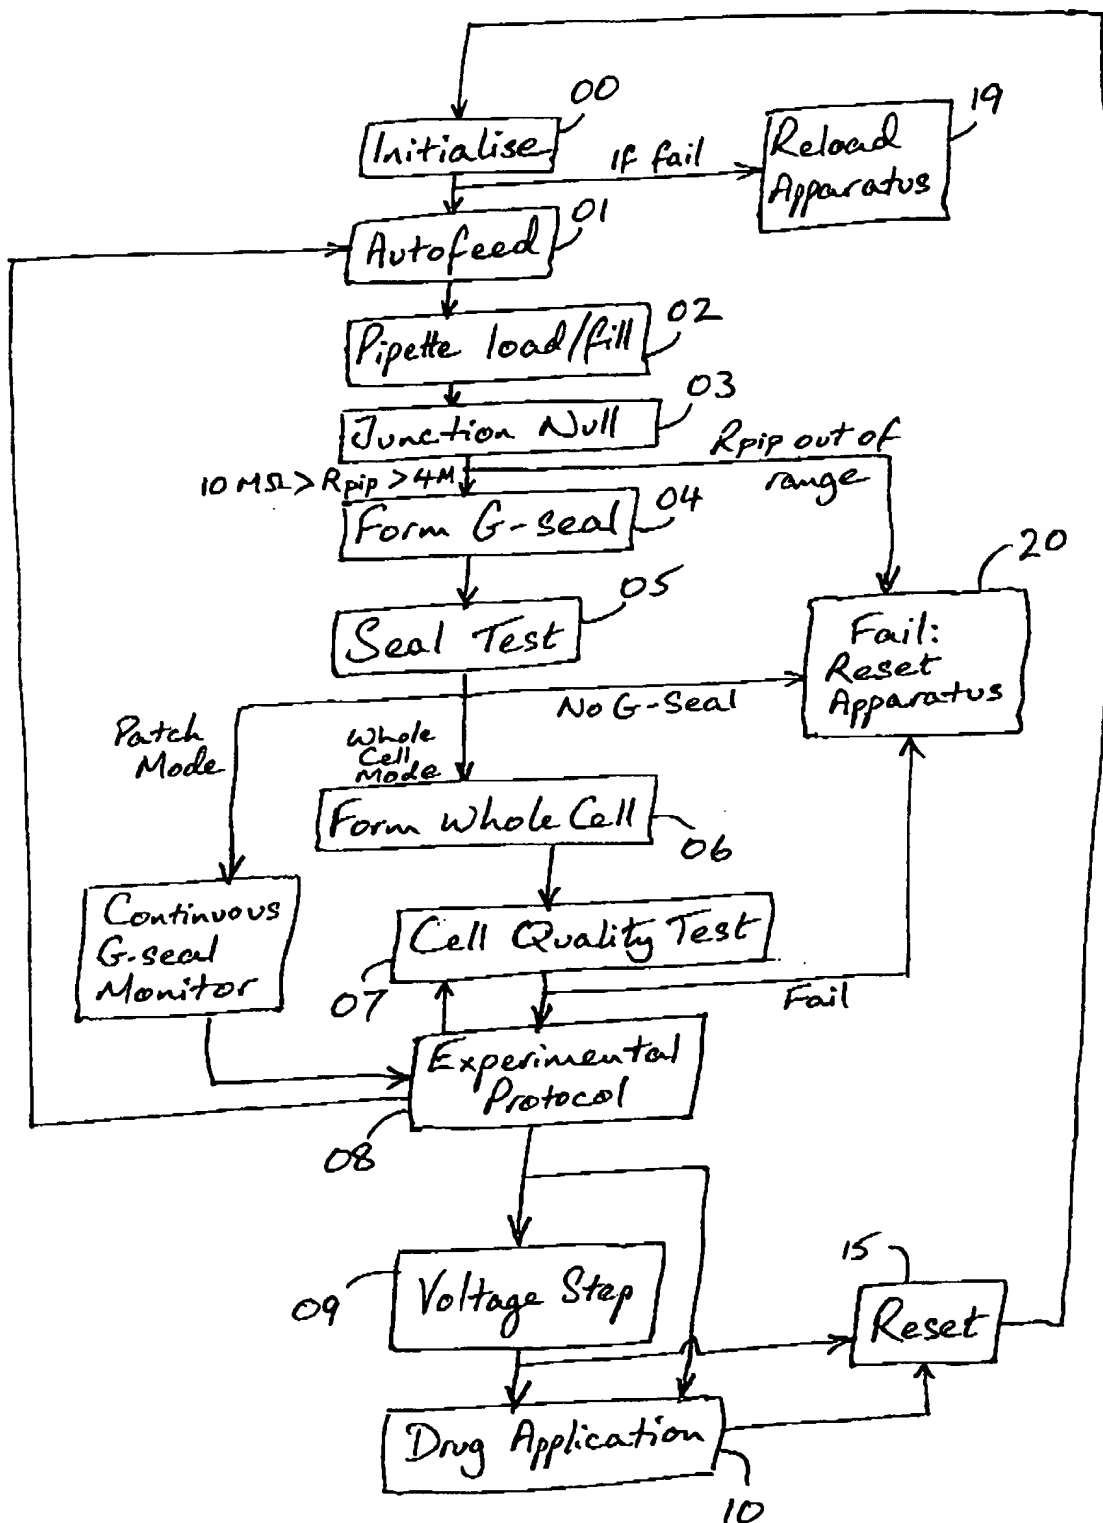 00
Initialise
If fail
19
Reload
Apparatus
01
Autofeed
02
Pipette load/fill
03
Junction Null
10 MΩ > Rpip > 4M
Rpip out of
range
04
Form G-seal
05
Seal Test
20
Fail:
Reset
Apparatus
No G-Seal
Patch
Mode
Whole
Cell
Mode
Form Whole Cell
06
Continuous
G-seal
Monitor
Cell Quality Test
07
Fail
Experimental
Protocol
08
09
Voltage Step
15
Reset
Drug Application
10